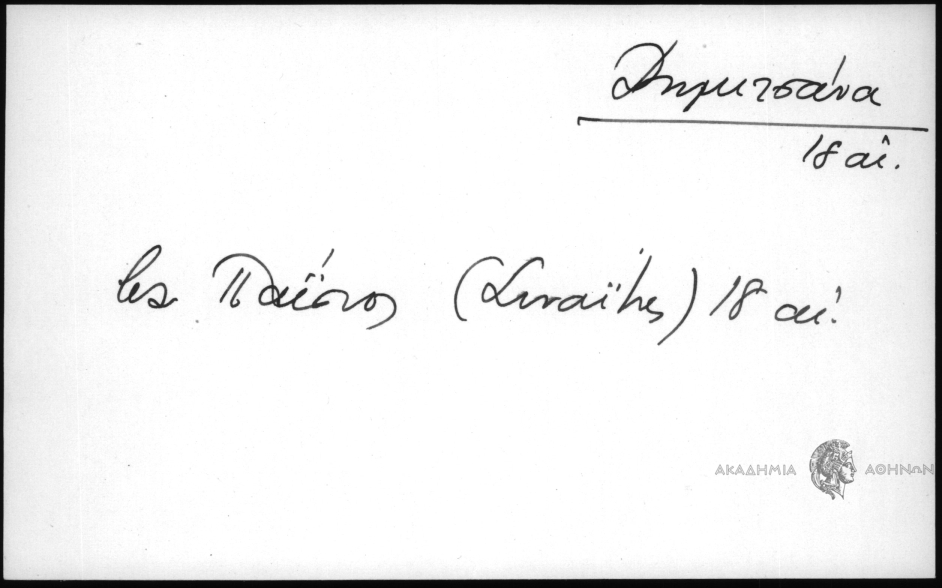 Δημιτσάνα
18 αἰ.
Παΐσιος (Σιναΐτης) 18 αἰ.
ΑΚΑΔΗΜΙΑ ΑΘΗΝΩΝ